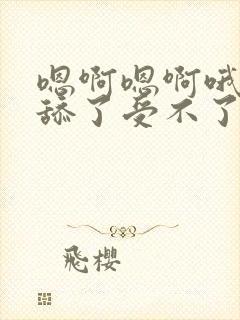 嗯啊嗯啊哦
舔了受不了
飛櫻